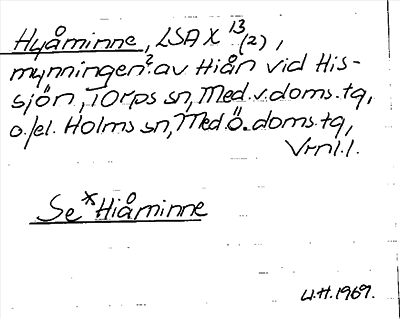 Hyåminne, LSA X 13 (2),
mynningen? av Hiån vid His-
sjön, Torps sn, Med. v. doms. tg,
o./el. Holms sn, Med. ö. doms. tg,
Vrnl. l.
Se *Hiåminne
U.H. 1969.